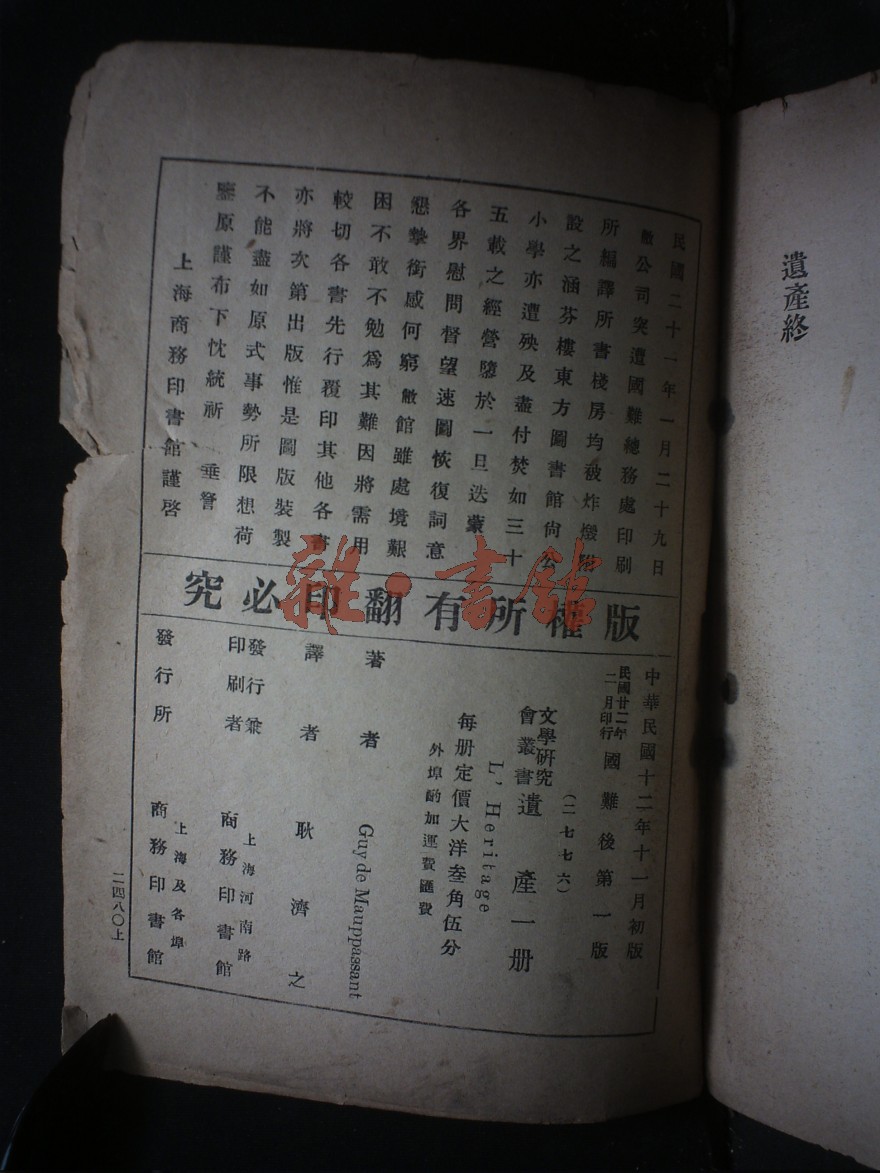 遺產終
民國二十一年一月二十九日
敝公司突遭國難總務處印刷
所編譯所書棧房均被炸燬附
設之涵芬樓東方圖書館尙公
小學亦遭殃及盡付焚如三十
五載之經營隳於一旦迭蒙
各界慰問督望速圖恢復詞意
懇摯銜感何窮敝館雖處境艱
困不敢不勉爲其難因將需用
較切各書先行覆印其他各書
亦將次第出版惟是圖版裝製
不能盡如原式事勢所限想荷
鑒原謹布下忱統祈 垂詧
上海商務印書館謹啓
版權所有翻印必究
中華民國十二年十一月初版
民國廿二年二月印行 國難後第一版
(二七七六)
文學研究會叢書 遺產一册
L' Heritage
每册定價大洋叁角伍分
外埠酌加運費匯費
著者 Guy de Mauppassant
譯者 耿濟之
發行兼印刷者 上海河南路 商務印書館
發行所 上海及各埠 商務印書館
二四八〇上
雜·書館